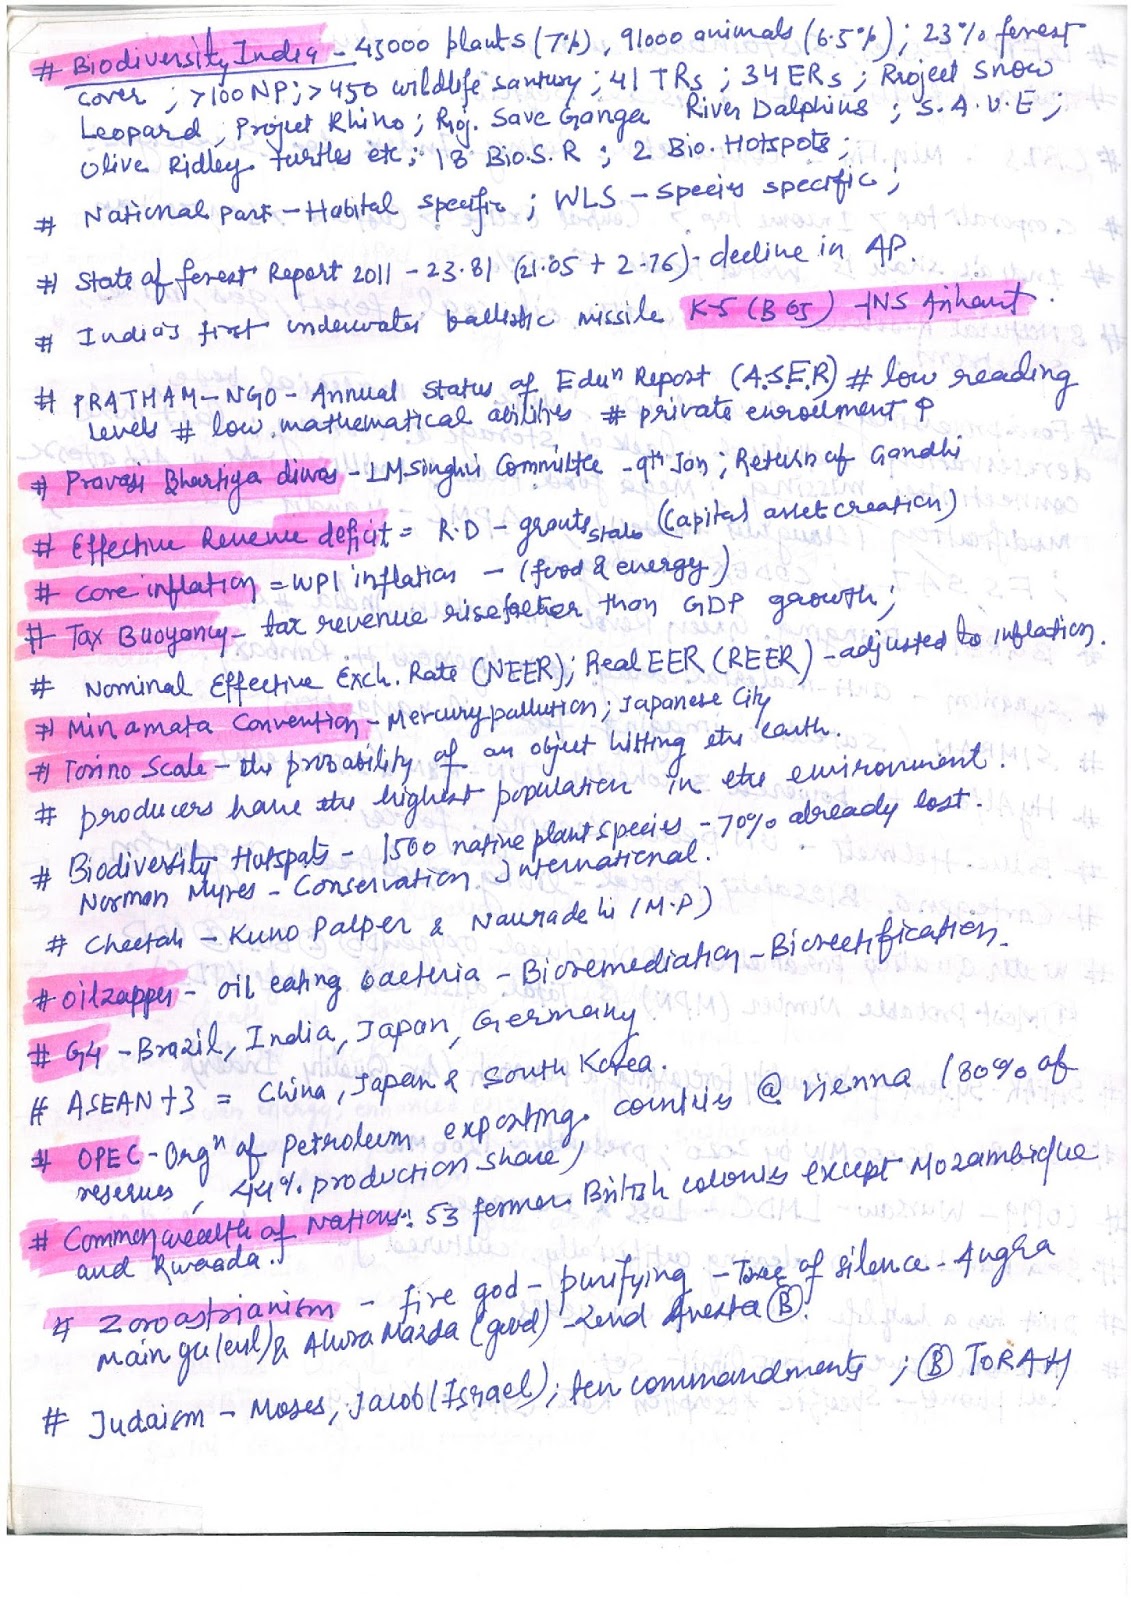 # Biodiversity India - 43000 plants (7%), 91000 animals (6.5%); 23% forest
cover ; >100 NP; > 450 wildlife santury ; 41 TRs ; 34 ERs ; Project Snow
Leopard ; Project Rhino ; Proj. Save Ganga River Dalphins ; S.A.V.E ;
Olive Ridley turtles etc ; 18 Bio.S.R ; 2 Bio. Hotspots ;
# National Park - Habital specific ; WLS - species specific ;
# State of forest Report 2011 - 23.81 (21.05 + 2.76) - decline in AP.
# India's first underwater ballistic missile K-5 (B05) - INS Arihant.
# PRATHAM - NGO - Annual Status of Eduⁿ Report (A.S.E.R) # low reading
levels # low mathematical abilities # private enrollment ↑
# Pravasi Bhartiya diwas - LM Singhvi Committee - 9th Jan ; Return of Gandhi
# Effective Revenue deficit = R.D - grants states (Capital asset creation)
# core inflation = WPI inflation - (food & energy)
# Tax Buoyancy - tax revenue rise faster than GDP growth ;
# Nominal Effective Exch. Rate (NEER); Real EER (REER) - adjusted to inflation.
# Minamata Convention - Mercury pollution ; Japanese City
# Torino Scale - the probability of an object hitting the earth.
# producers have the highest population in the environment.
# Biodiversity Hotspots - 1500 native plant species - 70% already lost.
Norman Myres - Conservation International.
# Cheetah - Kuno Palper & Nauradehi (M.P)
# Oilzapper - oil eating bacteria - Bioremediation - Biorectification.
# G4 - Brazil, India, Japan, Germany
# ASEAN+3 = China, Japan & South Korea.
# OPEC - Orgⁿ of petroleum exporting countries @ vienna (80% of
reserves, 44% production share)
# Commonwealth of Nations : 53 former British colonies except Mozambique
and Rwanda.
# Zoroastrianism - fire god - purifying - Tree of silence - Angra
Mainyu (evil) & Ahura Mazda (good) - Zend Avesta Ⓑ
# Judaism - Moses, Jacob (Israel); ten commandments ; Ⓑ TORAH